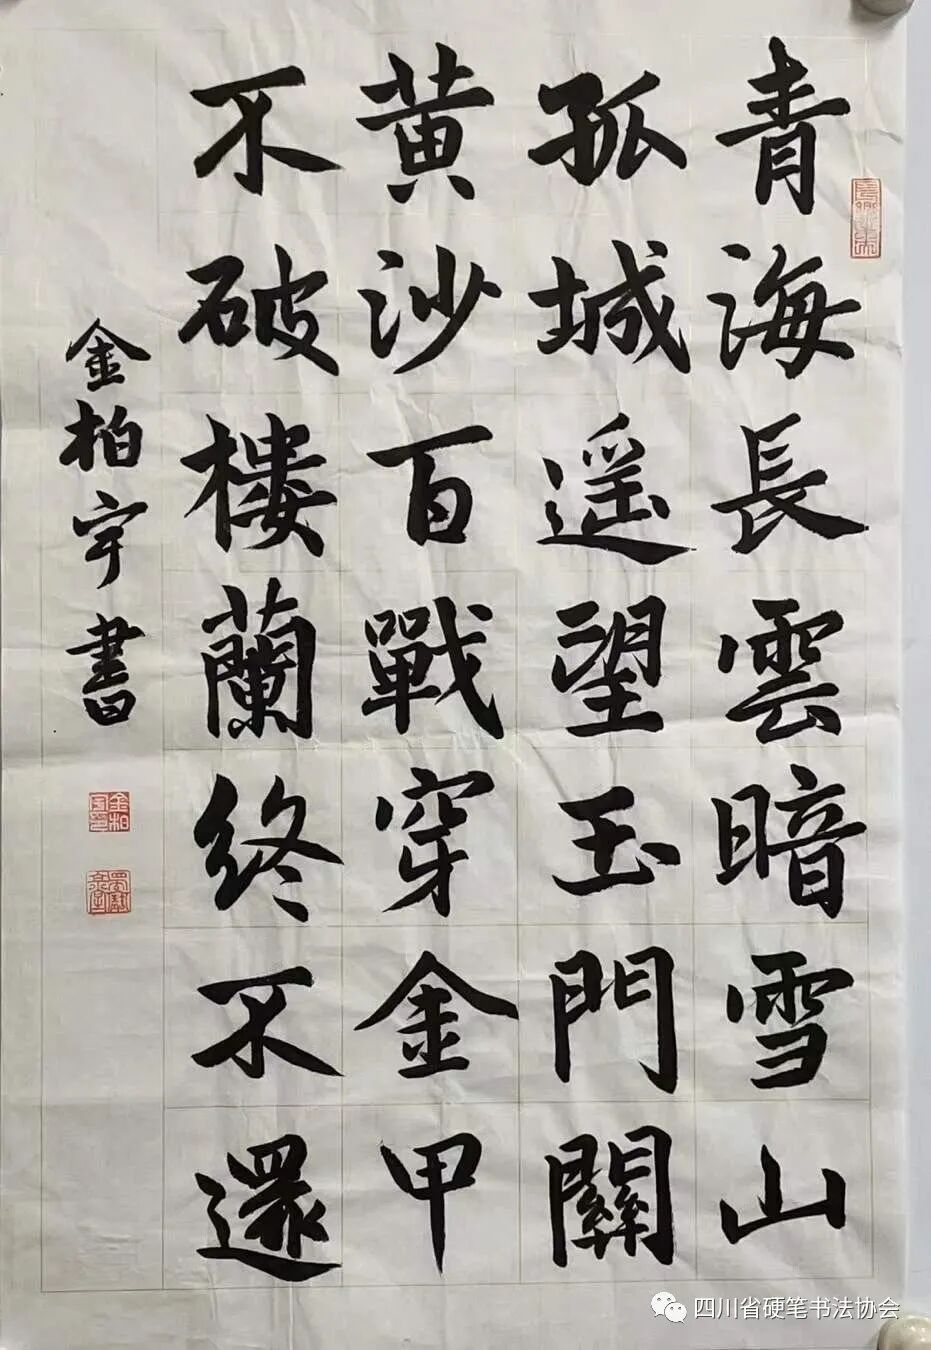 青海長雲暗雪山
孤城遥望玉門關
黄沙百戰穿金甲
不破樓蘭終不還
金柏宇書
金柏宇印
四川省硬笔书法协会